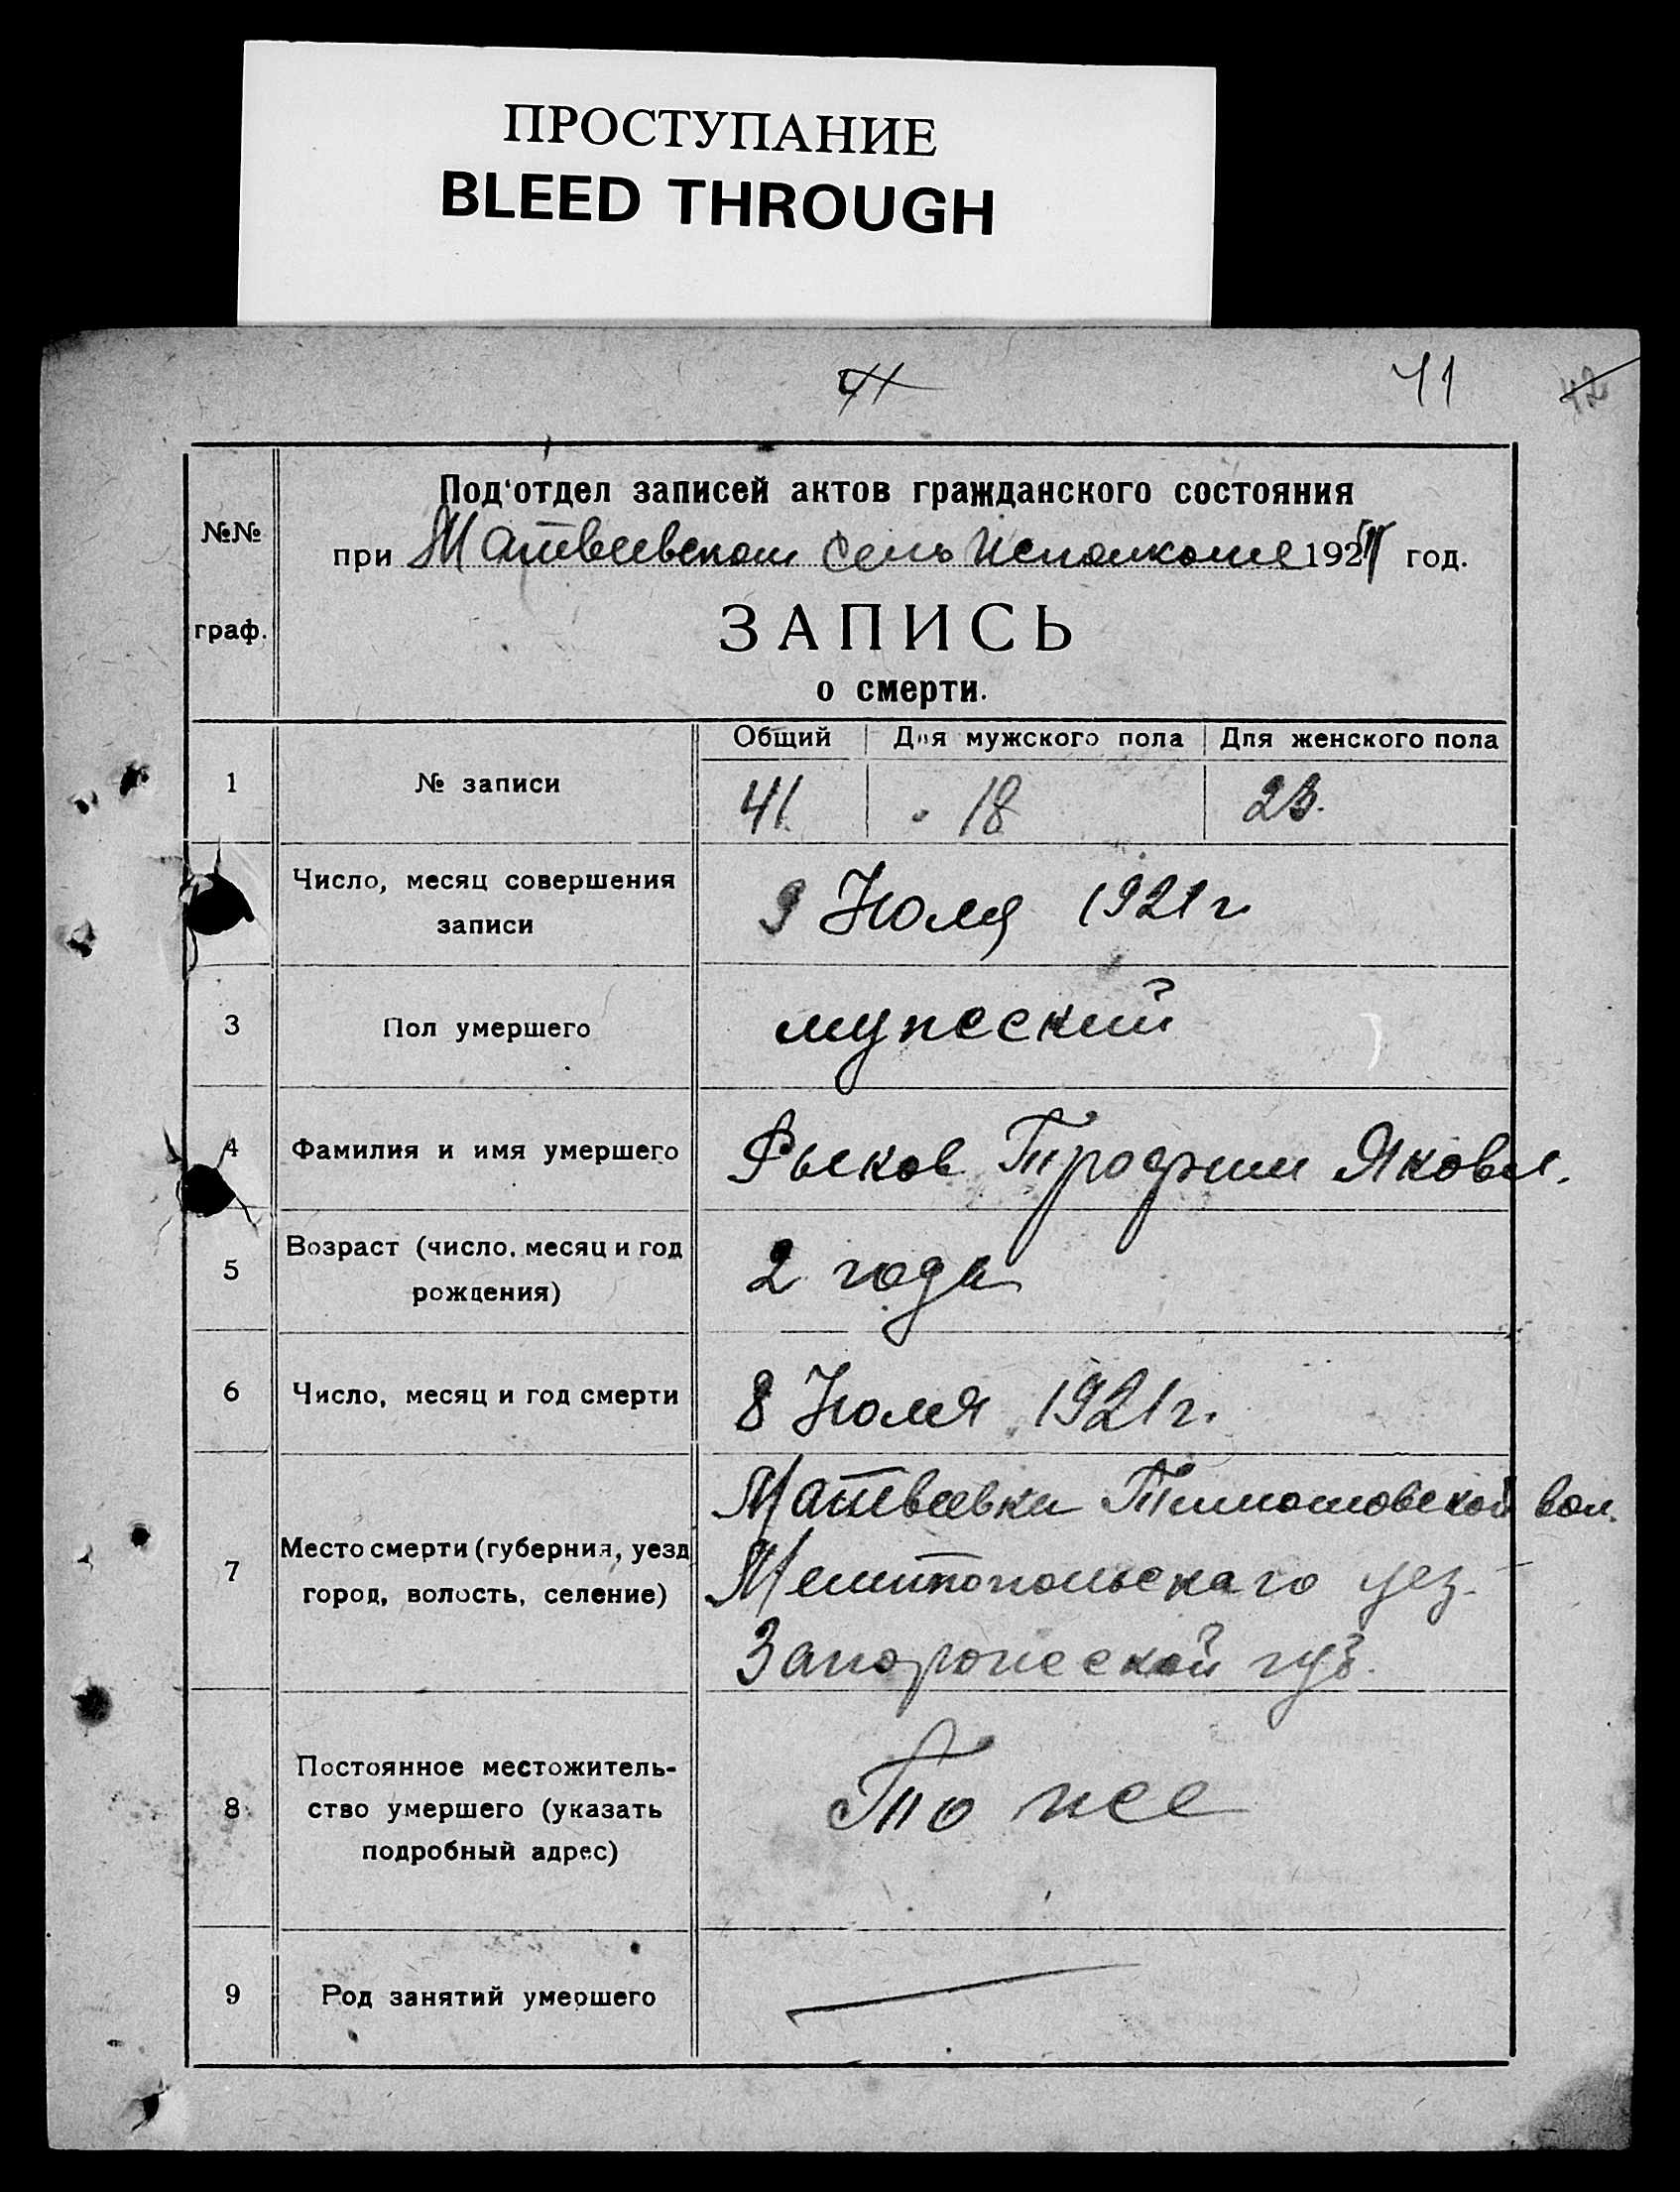 ПРОСТУПАНИЕ
BLEED THROUGH
41
41
42
Под'отдел записей актов гражданского состояния
№№
при Матвеевском Сельисполкоме 1921 год.
граф.
ЗАПИСЬ
о смерти.
Общий Для мужского пола Для женского пола
1 № записи 41 18 23.
Число, месяц совершения
записи
9 Июля 1921 г
3 Пол умершего мужеский
4 Фамилия и имя умершего Рыков Трофим Яковл.
Возраст (число, месяц и год
5
рождения)
2 года
6 Число, месяц и год смерти 8 Июля 1921 г.
Матвеевка Тимошовской вол.
Место смерти (губерния, уезд
7
город, волость, селение)
Мелитопольскаго уез.
Запорожеской губ.
Постоянное местожитель-
8 ство умершего (указать
подробный адрес)
То же
9 Род занятий умершего